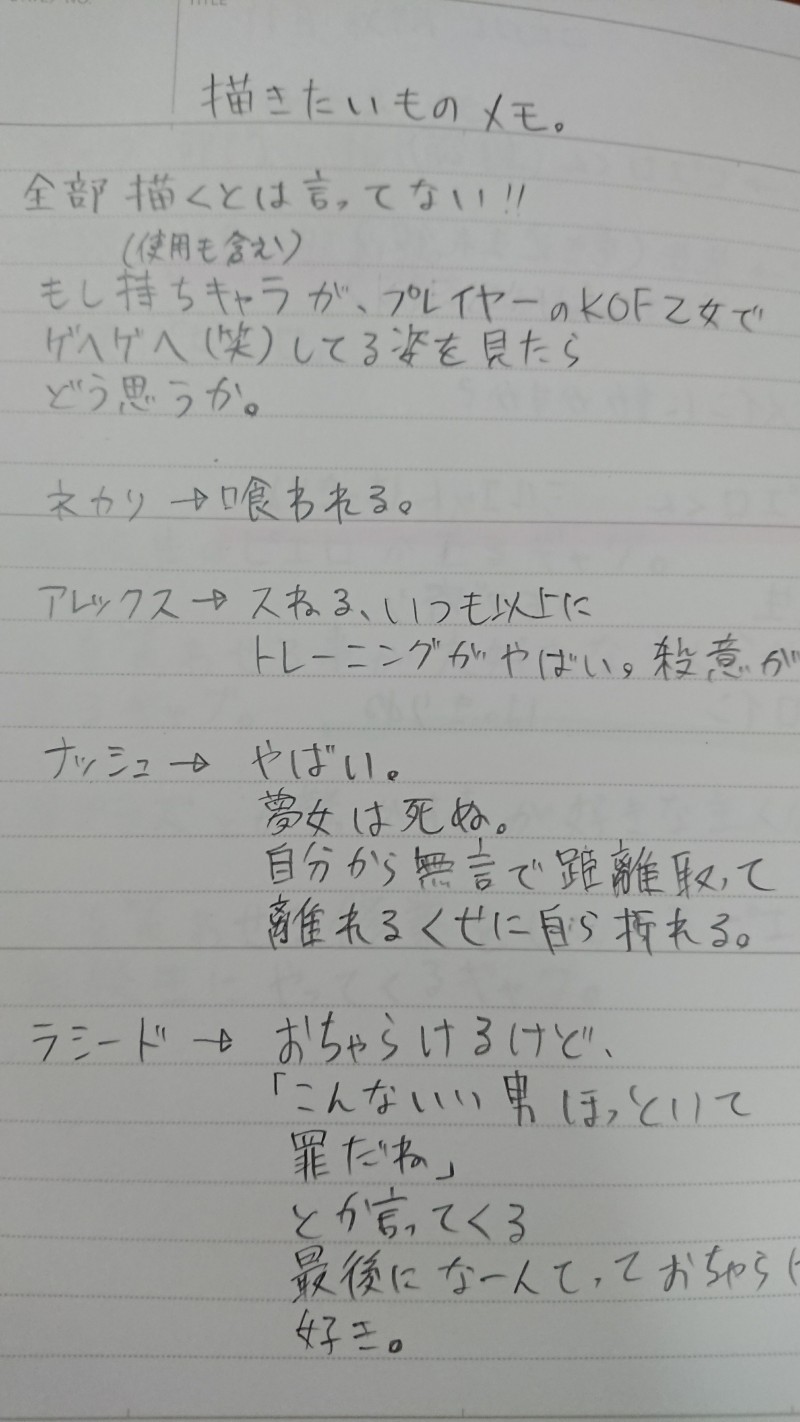 描きたいものメモ。
全部描くとは言ってない!!
(使用も含め)
もし持ちキャラが、プレイヤーのKOF乙女で
ゲヘゲヘ(笑)してる姿を見たら
どう思うか。
ネカリ→喰われる。
アレックス→スねる、いつも以上に
トレーニングがやばい。殺意が
ナッシュ→やばい。
夢女は死ぬ。
自分から無言で距離取って
離れるくせに自ら折れる。
ラシード→おちゃらけるけど、
「こんないい男ほっといて
罪だね」
とか言ってくる
最後になーんてっておちゃらけ
好き。